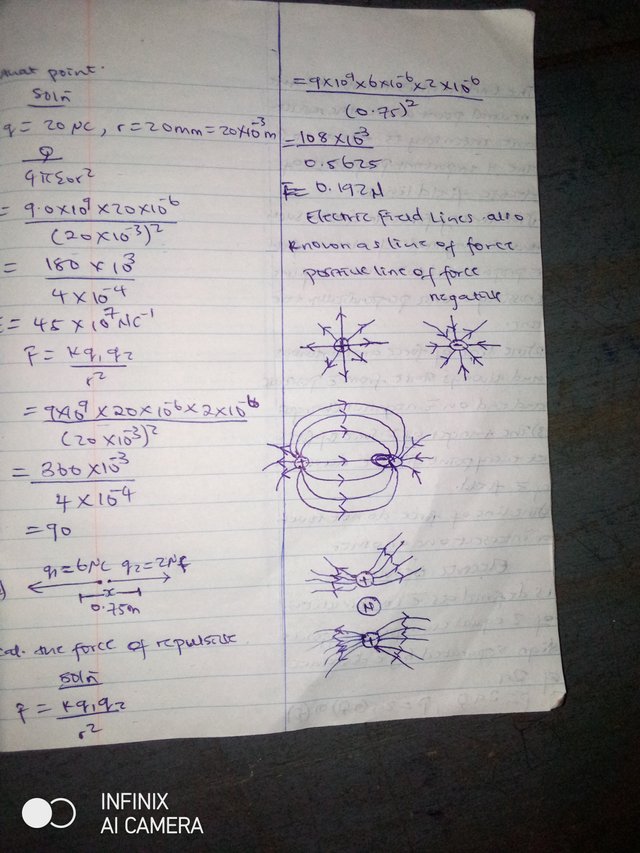 point.
soln
q = 20μC, r = 20mm = 20×10⁻³m
Q
4πε0r²
= 9.0×10⁹×20×10⁻⁶
(20×10⁻³)²
= 180 × 10³
4 × 10⁻⁴
= 45 × 10⁷ NC⁻¹
F = kq1q2
r²
= 9×10⁹ × 20×10⁻⁶ × 2×10⁻⁶
(20 ×10⁻³)²
= 360 ×10⁻³
4 × 10⁻⁴
= 90
q1 = 6μC q2 = 2μC
x
0.75m
the force of repulsive
soln
F = kq1q2
r²
= 9×10⁹×6×10⁻⁶×2×10⁻⁶
(0.75)²
= 108 ×10⁻³
0.5625
F = 0.192N
Electric field lines also
known as line of force
positive line of force
negative
+ −
+ −
+
N
+
INFINIX
AI CAMERA